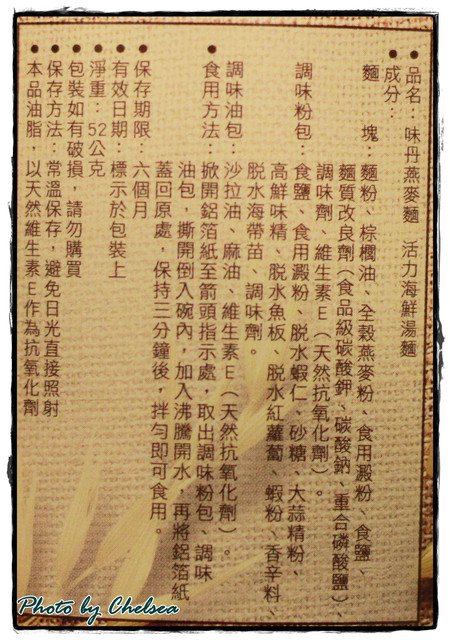 ●品名：味丹燕麥麵 活力海鮮湯麵
●成分：
麵 塊：麵粉、棕櫚油、全穀燕麥粉、食用澱粉、食鹽、
麵質改良劑（食品級碳酸鉀、碳酸鈉、重合磷酸鹽）、
調味劑、維生素E（天然抗氧化劑）。
調味粉包：食鹽、食用澱粉、脫水蝦仁、砂糖、大蒜精粉、
高鮮味精、脫水魚板、脫水紅蘿蔔、蝦粉、香辛料、
脫水海帶苗、調味劑。
調味油包：沙拉油、麻油、維生素E（天然抗氧化劑）。
●食用方法：掀開鋁箔紙至箭頭指示處，取出調味粉包、調味
油包，撕開倒入碗內，加入沸騰開水，再將鋁箔紙
蓋回原處，保持三分鐘後，拌勻即可食用。
●保存期限：六個月
●有效日期：標示於包裝上
●淨重：52公克
●包裝如有破損，請勿購買
●保存方法：常溫保存，避免日光直接照射
●本品油脂，以天然維生素E作為抗氧化劑
Photo by Chelsea